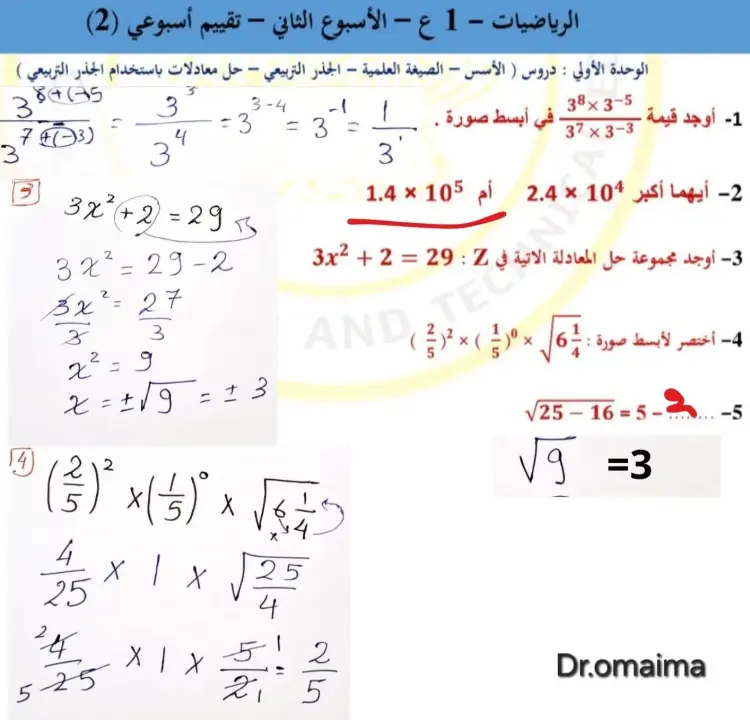 الرياضيات – 1 ع – الأسبوع الثاني – تقييم أسبوعي (2)
الوحدة الأولي : دروس ( الأسس – الصيغة العلمية – الجذر التربيعي – حل معادلات باستخدام الجذر التربيعي )
1- أوجد قيمة (3⁸ × 3⁻⁵)/(3⁷ × 3⁻³) في أبسط صورة .
3^(8+(-)5)/3^(7+(-)3) = 3³/3⁴ = 3³⁻⁴ = 3⁻¹ = 1/3¹
2- أيهما أكبر 2.4 × 10⁴ أم 1.4 × 10⁵
3- أوجد مجموعة حل المعادلة الاتية في Z : 3x² + 2 = 29
3
3x² + 2 = 29
3x² = 29 - 2
3x²/3 = 27/3
x² = 9
x = ±√9 = ± 3
4- أختصر لأبسط صورة : (2/5)² × (1/5)⁰ × √(6 1/4)
5- √(25 − 16) = 5 − ...2...
√9 =3
4
(2/5)² × (1/5)⁰ × √(6 1/4)
4/25 × 1 × √(25/4)
4/25 × 1 × 5/2 = 2/5
Dr.omaima